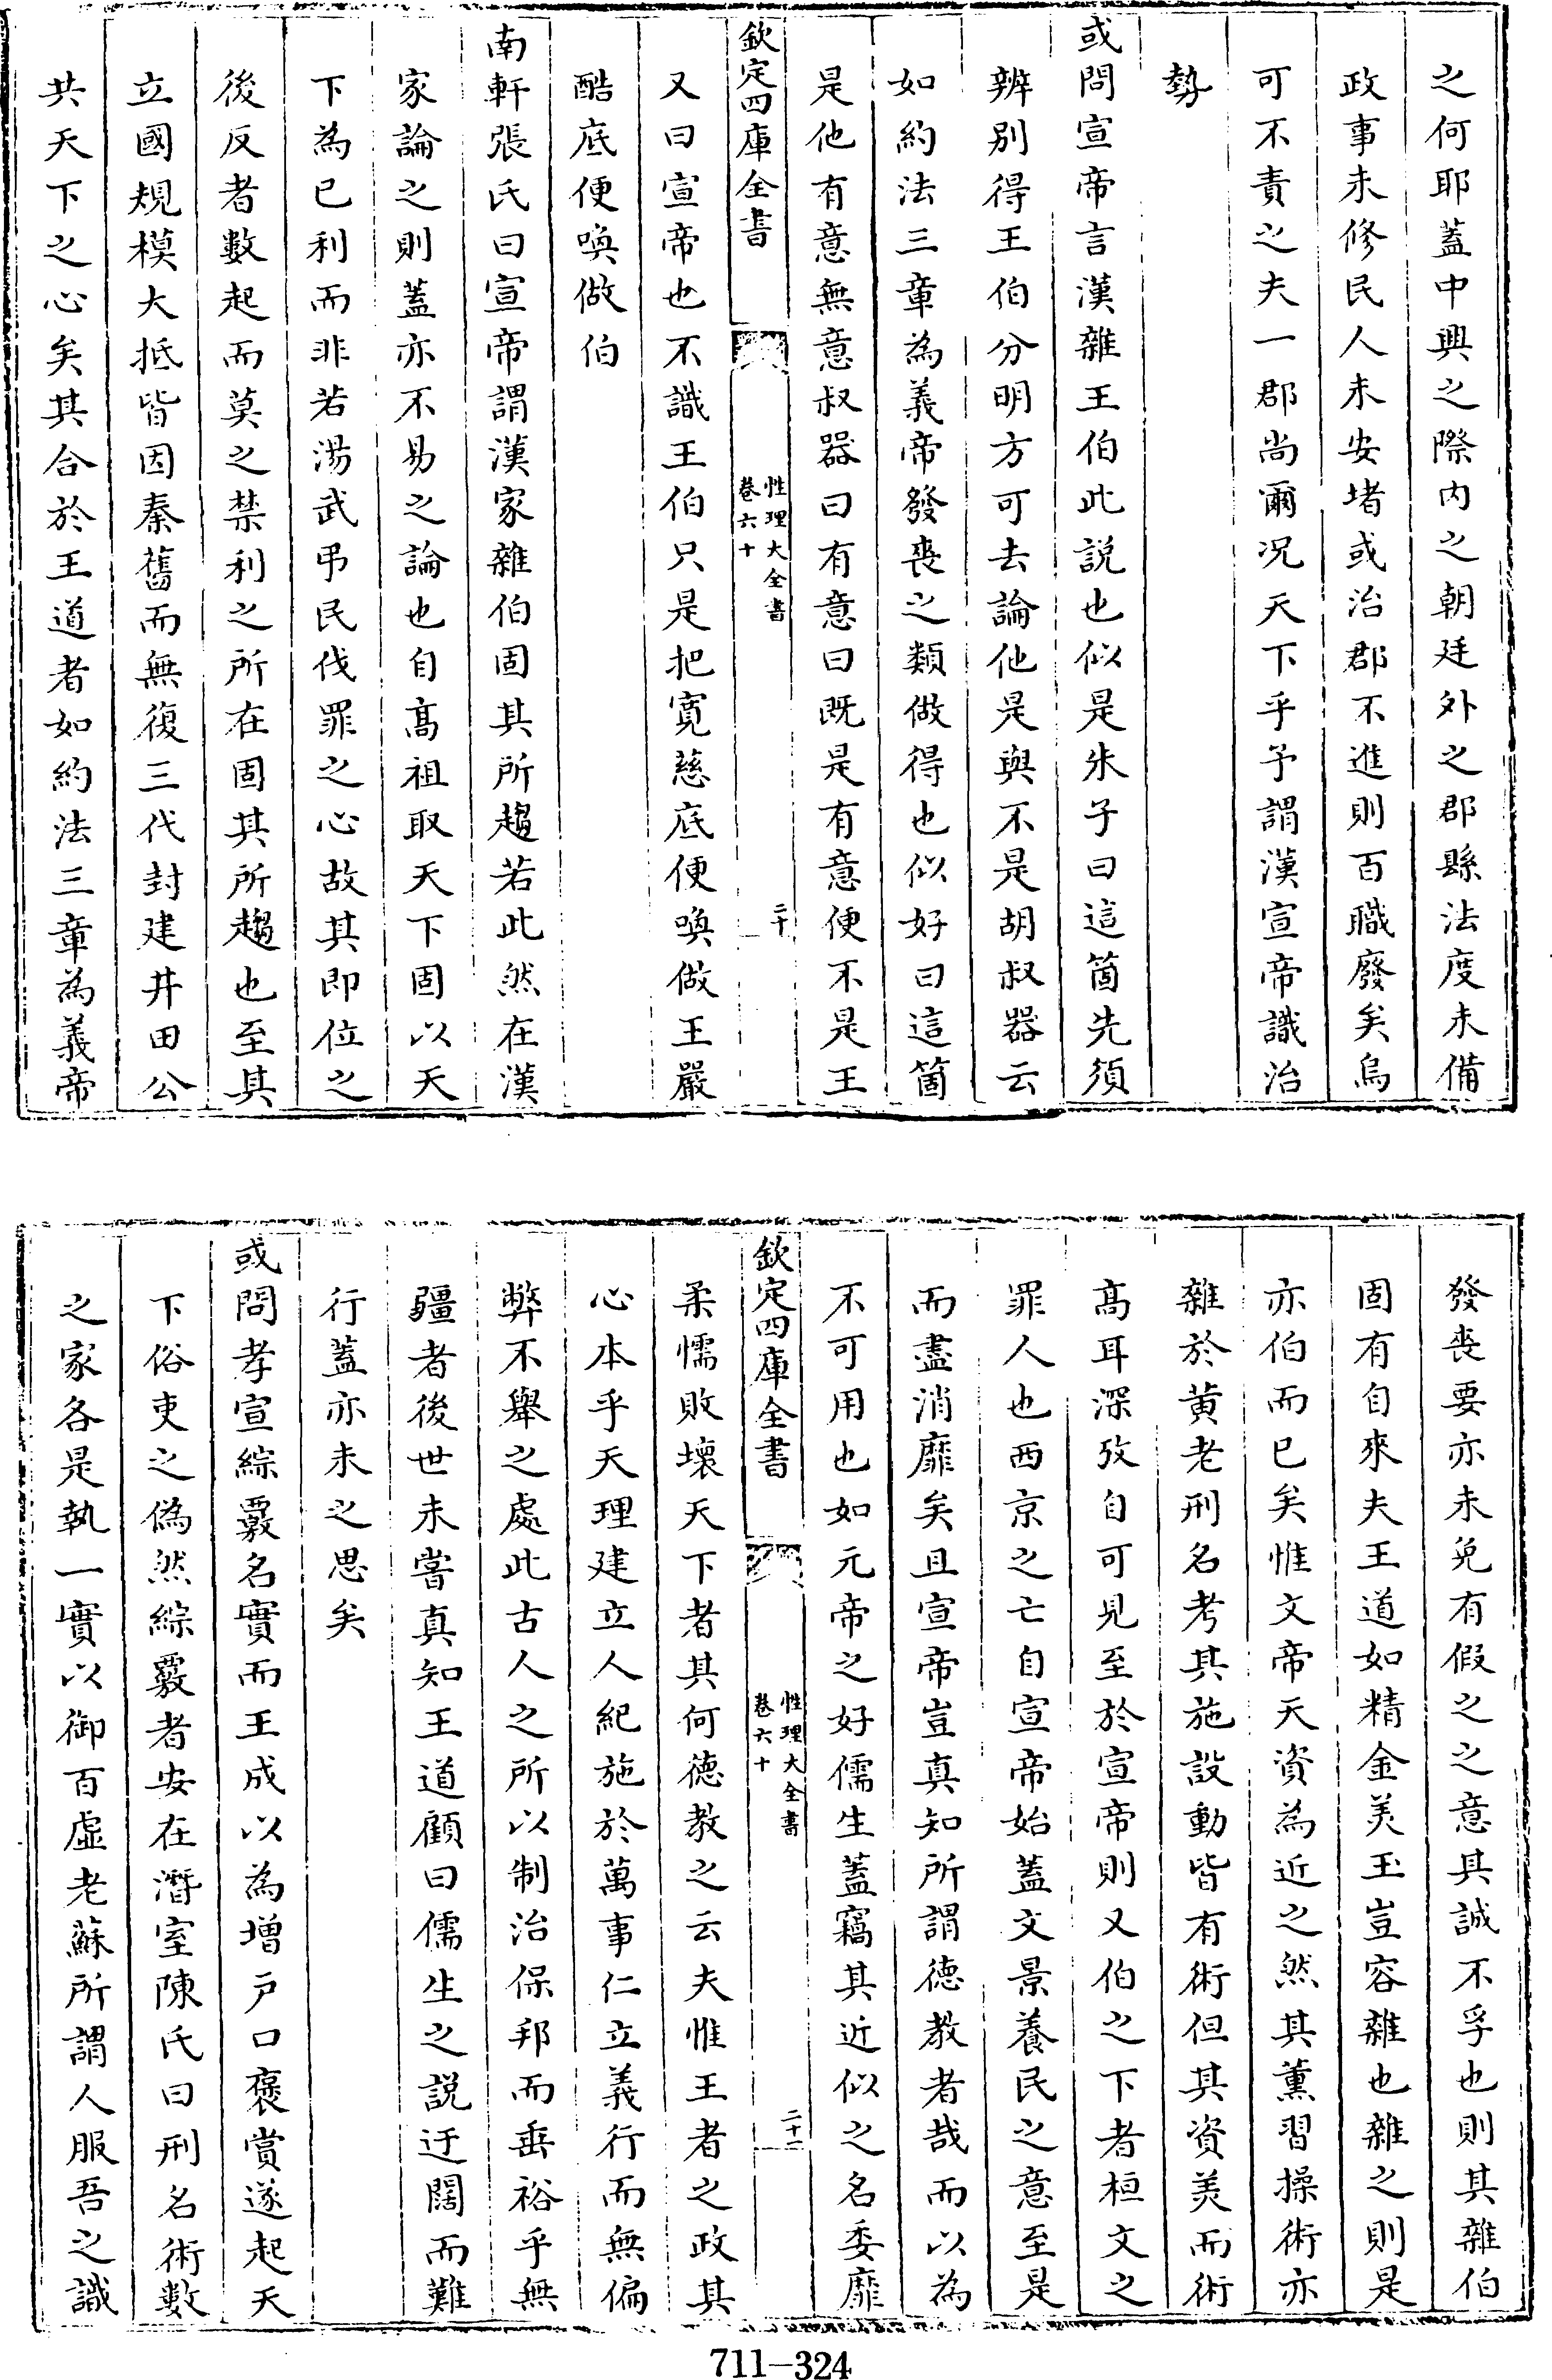 之何耶蓋中興之際内之朝廷外之郡縣法度未備
政事未修民人未安堵或治郡不進則百職廢矣烏
可不責之夫一郡尚爾况天下乎予謂漢宣帝識治
勢
或問宣帝言漢雜王伯此説也似是朱子曰這箇先須
辨别得王伯分明方可去論他是與不是胡叔器云
如約法三章為義帝發喪之類做得也似好曰這箇
是他有意無意叔器曰有意曰既是有意便不是王
欽定四庫全書
性理大全書
卷六十
二十
又曰宣帝也不識王伯只是把寛慈底便喚做王嚴
酷底便喚做伯
南軒張氏曰宣帝謂漢家雜伯固其所趨若此然在漢
家論之則蓋亦不易之論也自髙祖取天下固以天
下為已利而非若湯武弔民伐罪之心故其即位之
後反者數起而莫之禁利之所在固其所趨也至其
立國規模大抵皆因秦舊而無復三代封建井田公
共天下之心矣其合於王道者如約法三章為義帝
發喪要亦未免有假之之意其誠不孚也則其雜伯
固有自來夫王道如精金美玉豈容雜也雜之則是
亦伯而已矣惟文帝天資為近之然其薫習操術亦
雜於黄老刑名考其施設動皆有術但其資美而術
髙耳深攷自可見至於宣帝則又伯之下者桓文之
罪人也西京之亡自宣帝始蓋文景養民之意至是
而盡消靡矣且宣帝豈真知所謂徳教者哉而以為
不可用也如元帝之好儒生蓋竊其近似之名委靡
欽定四庫全書
性理大全書
卷六十
二十一
柔懦敗壞天下者其何徳教之云夫惟王者之政其
心本乎天理建立人紀施於萬事仁立義行而無偏
弊不舉之處此古人之所以制治保邦而垂裕乎無
疆者後世未嘗真知王道顧曰儒生之説迂闊而難
行蓋亦未之思矣
或問孝宣綜覈名實而王成以為增户口褒賞遂起天
下俗吏之偽然綜覈者安在潛室陳氏曰刑名術數
之家各是執一實以御百虚老蘇所謂人服吾之識
711-324